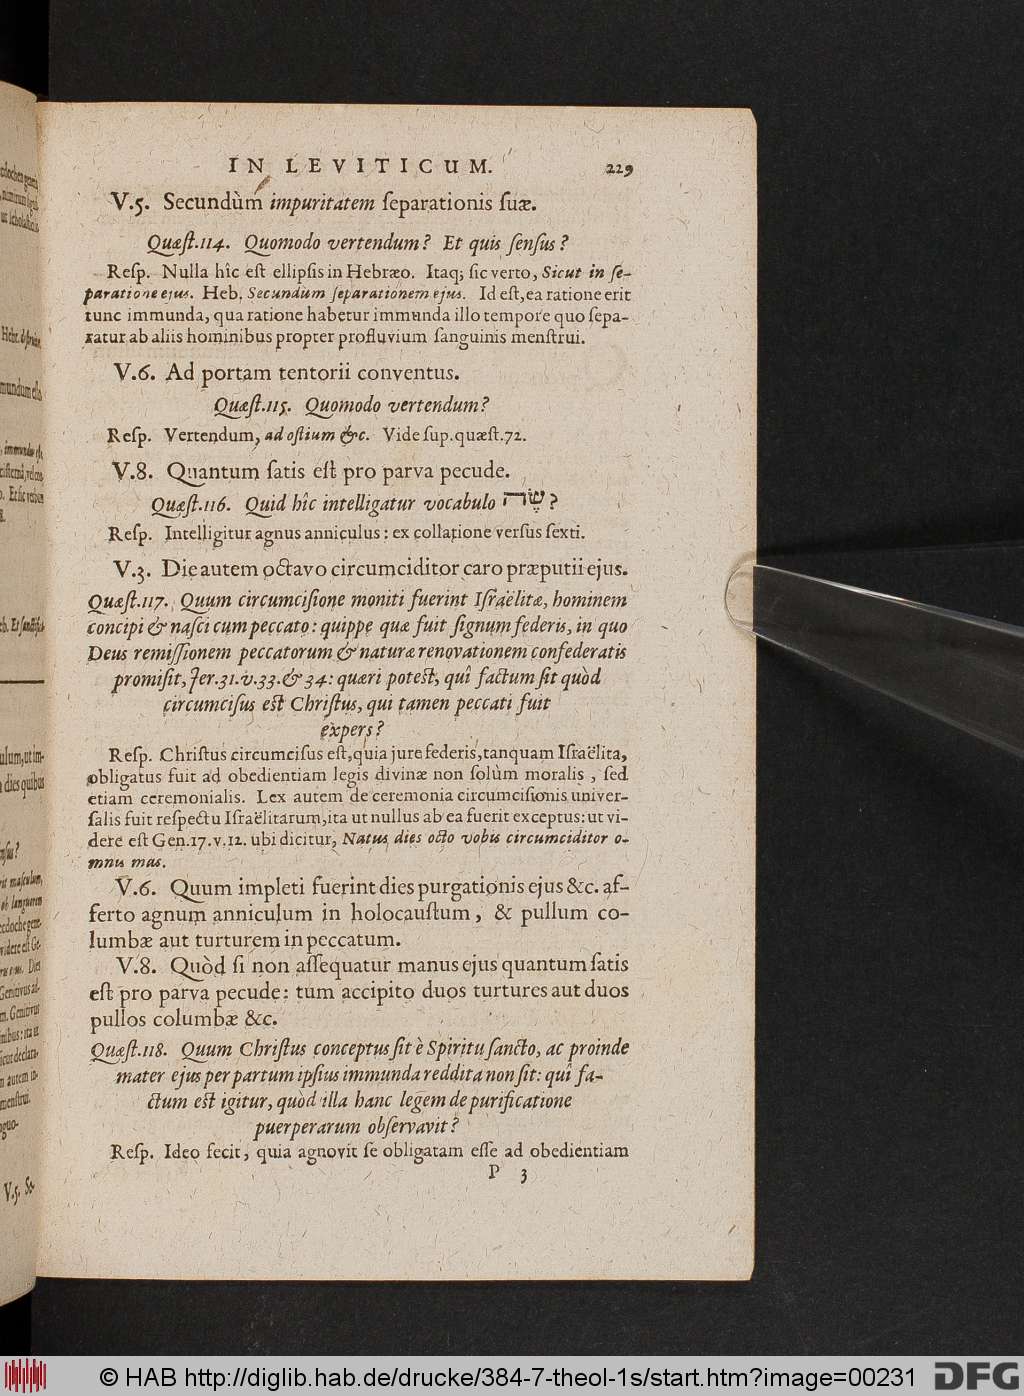 IN LEVITICUM. 229
V.5. Secundùm impuritatem ſeparationis ſuæ.
Quæſt.114. Quomodo vertendum? Et quis ſenſus?
Reſp. Nulla hîc eſt ellipſis in Hebræo. Itaq; ſic verto, Sicut in ſe-
paratione ejus. Heb. Secundùm ſeparationem ejus. Id eſt, ea ratione erit
tunc immunda, qua ratione habetur immunda illo tempore quo ſepa-
ratur ab aliis hominibus propter profluvium ſanguinis menſtrui.
V.6. Ad portam tentorii conventus.
Quæſt.115. Quomodo vertendum?
Reſp. Vertendum, ad oſtium &c. Vide ſup.quæſt.72.
V.8. Quantum ſatis eſt pro parva pecude.
Quæſt.116. Quid hîc intelligatur vocabulo שֶׂה?
Reſp. Intelligitur agnus anniculus: ex collatione verſus ſexti.
V.3. Die autem octavo circumciditor caro præputii ejus.
Quæſt.117. Quum circumciſione moniti fuerint Iſraëlitæ, hominem
concipi & naſci cum peccato: quippe quæ fuit ſignum federis, in quo
Deus remiſſionem peccatorum & naturæ renovationem confederatis
promiſit, Jer.31.v.33.& 34: quæri poteſt, quî factum ſit quòd
circumciſus eſt Chriſtus, qui tamen peccati fuit
expers?
Reſp. Chriſtus circumciſus eſt, quia jure federis, tanquam Iſraëlita,
obligatus fuit ad obedientiam legis divinæ non ſolùm moralis, ſed
etiam ceremonialis. Lex autem de ceremonia circumciſionis univer-
ſalis fuit reſpectu Iſraëlitarum, ita ut nullus ab ea fuerit exceptus: ut vi-
dere eſt Gen.17.v.12. ubi dicitur, Natus dies octo vobis circumciditor o-
mnis mas.
V.6. Quum impleti fuerint dies purgationis ejus &c. af-
ferto agnum anniculum in holocauſtum, & pullum co-
lumbæ aut turturem in peccatum.
V.8. Quòd ſi non aſſequatur manus ejus quantum ſatis
eſt pro parva pecude: tum accipito duos turtures aut duos
pullos columbæ &c.
Quæſt.118. Quum Chriſtus conceptus ſit è Spiritu ſancto, ac proinde
mater ejus per partum ipſius immunda reddita non ſit: quî fa-
ctum eſt igitur, quòd illa hanc legem de purificatione
puerperarum obſervavit?
Reſp. Ideo fecit, quia agnovit ſe obligatam eſſe ad obedientiam
P 3
V.5. Se-
© HAB http://diglib.hab.de/drucke/384-7-theol-1s/start.htm?image=00231
DFG